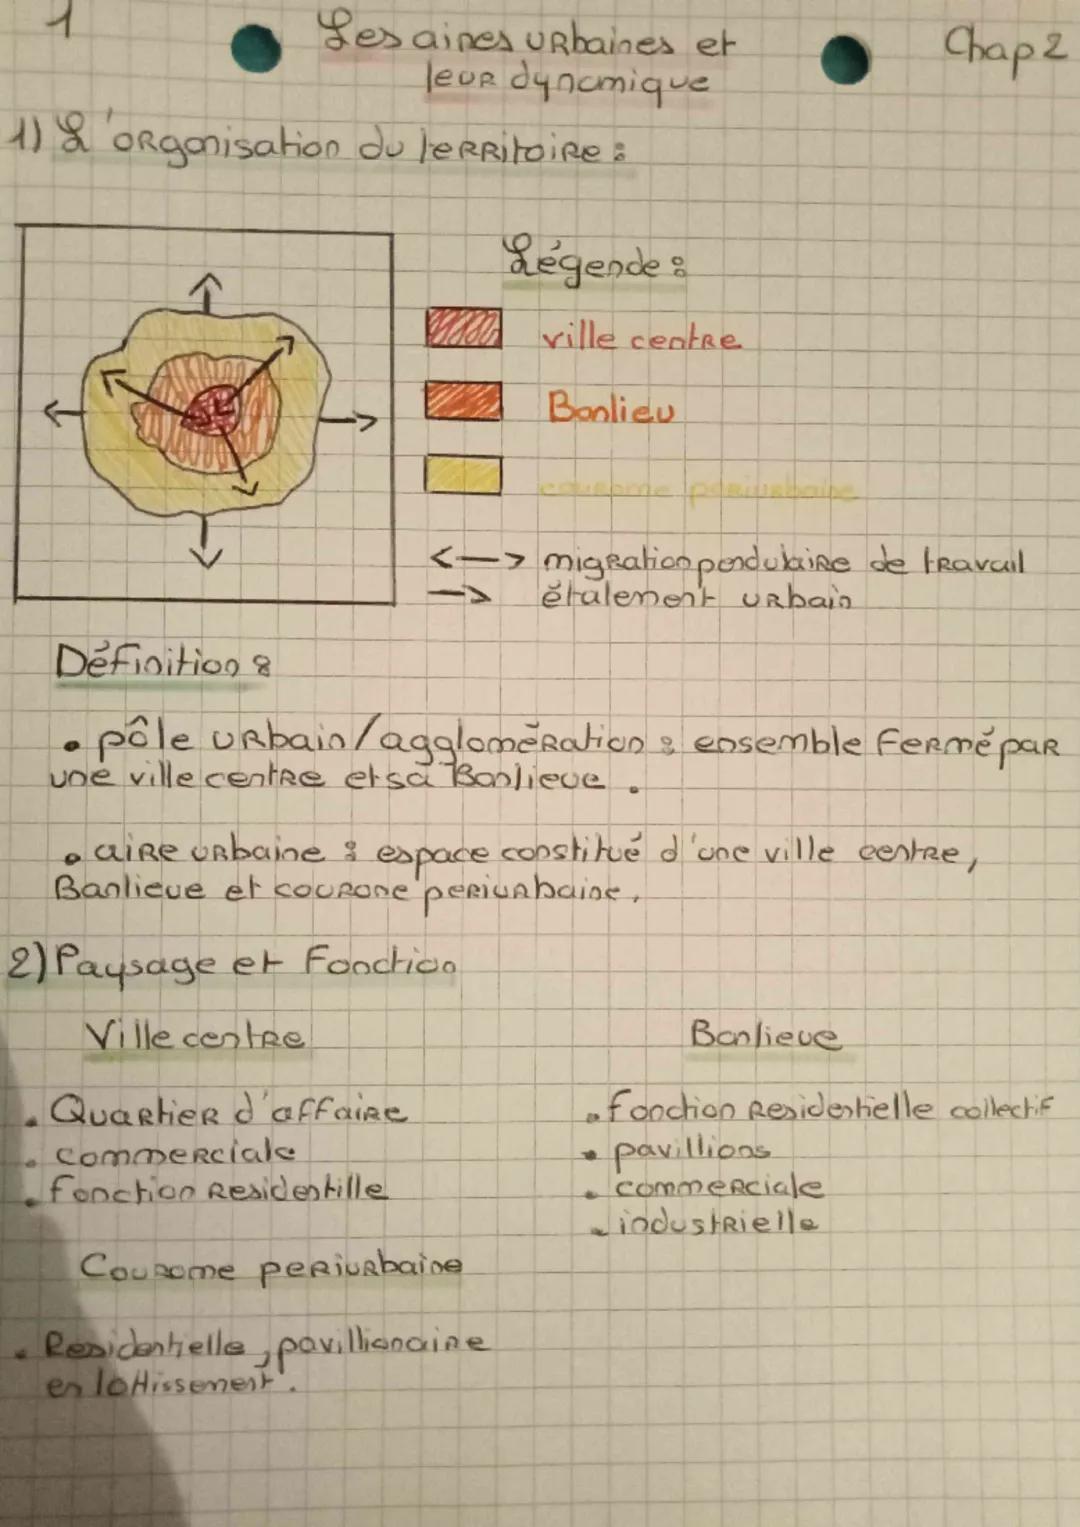 1
Les aires urbaines et
leur dynamique
Chap 2
1) L'organisation du territoire :
Légende :
ville centre
Banlieu
courome periurbaine
<—> migration pendulaire de travail
—> étalement urbain
Définition :
• pôle urbain/agglomération : ensemble Fermé par
une ville centre et sa Banlieue.
• aire urbaine : espace constitué d'une ville centre,
Banlieue et courone periurbaine.
2) Paysage et Fonction
Ville centre
Banlieue
• Quartier d'affaire
• fonction Residentielle collectif
• commerciale
• pavillions
• fonction Residentille
• commerciale
• industrielle
Courome periurbaine
• Residentielle, pavillionaire
en lottissement.